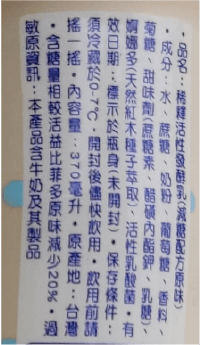 •品名：稀釋活性發酵乳(減糖配方原味)
•成分：水、蔗糖、奶粉、葡萄糖、香料、
菊糖、甜味劑(蔗糖素、醋磺內酯鉀、乳糖)、
婀娜多(天然紅木種子萃取)、活性乳酸菌•有
效日期：標示於瓶身(未開封)•保存條件：
須冷藏於0-7℃，開封後儘快飲用•飲用前請
搖一搖•內容量：370毫升•原產地：台灣
•含糖量相較活益比菲多原味減少20%•過
敏原資訊：本產品含牛奶及其製品